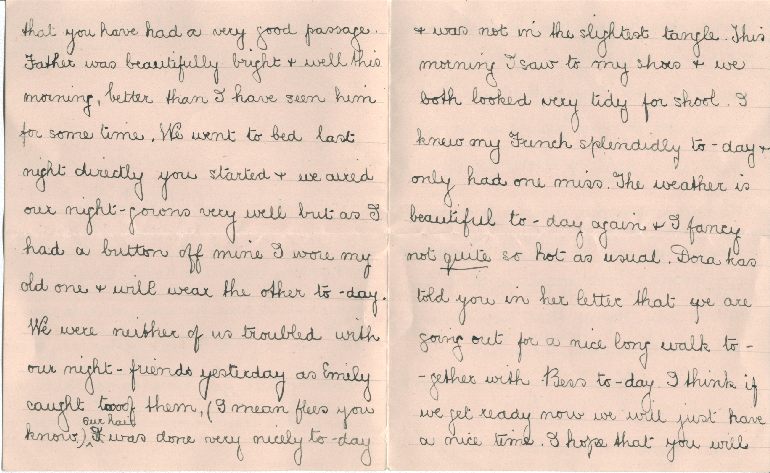 that you have had a very good passage.
Father was beautifully bright & well this
morning, better than I have seen him
for some time. We went to bed last
night directly you started & we aired
our night-gowns very well but as I
had a button off mine I wore my
old one & will wear the other to-day.
We were neither of us troubled with
our night-friends yesterday as Emily
caught two of them, (I mean flees you
our hair
know), was done very nicely to-day
& was not in the slightest tangle. This
morning I saw to my shoes & we
both looked very tidy for shool. I
knew my French splendidly to-day &
only had one miss. The weather is
beautiful to-day again & I fancy
not quite so hot as usual. Dora has
told you in her letter that we are
going out for a nice long walk to-
-gether with Bess to-day. I think if
we get ready now we will just have
a nice time. I hope that you will